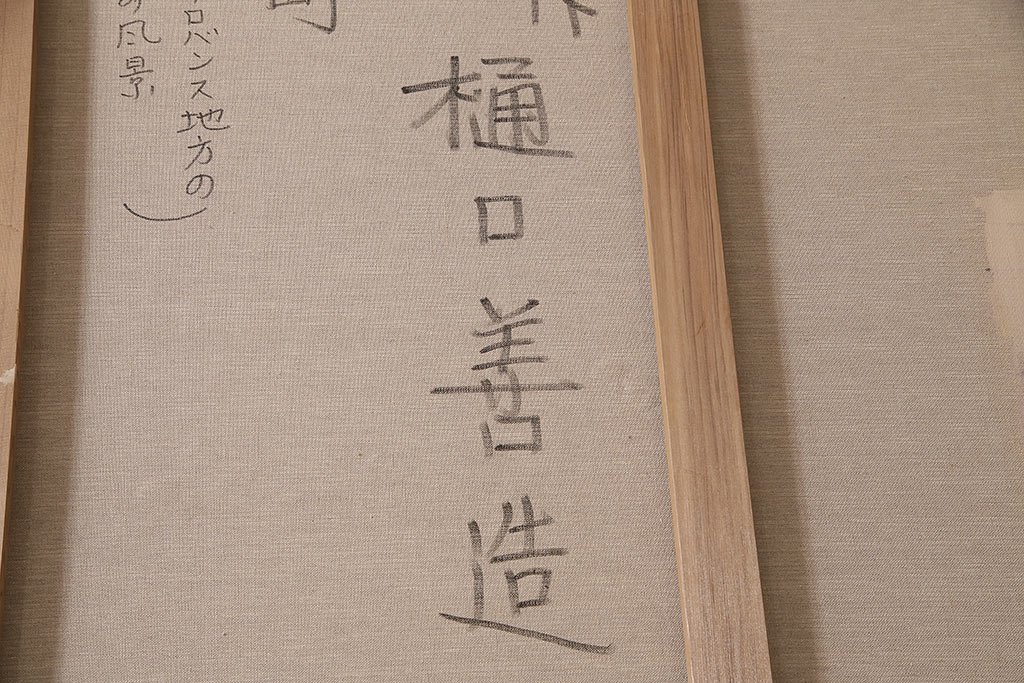 樋口善造
ロバンス地方の)
風景